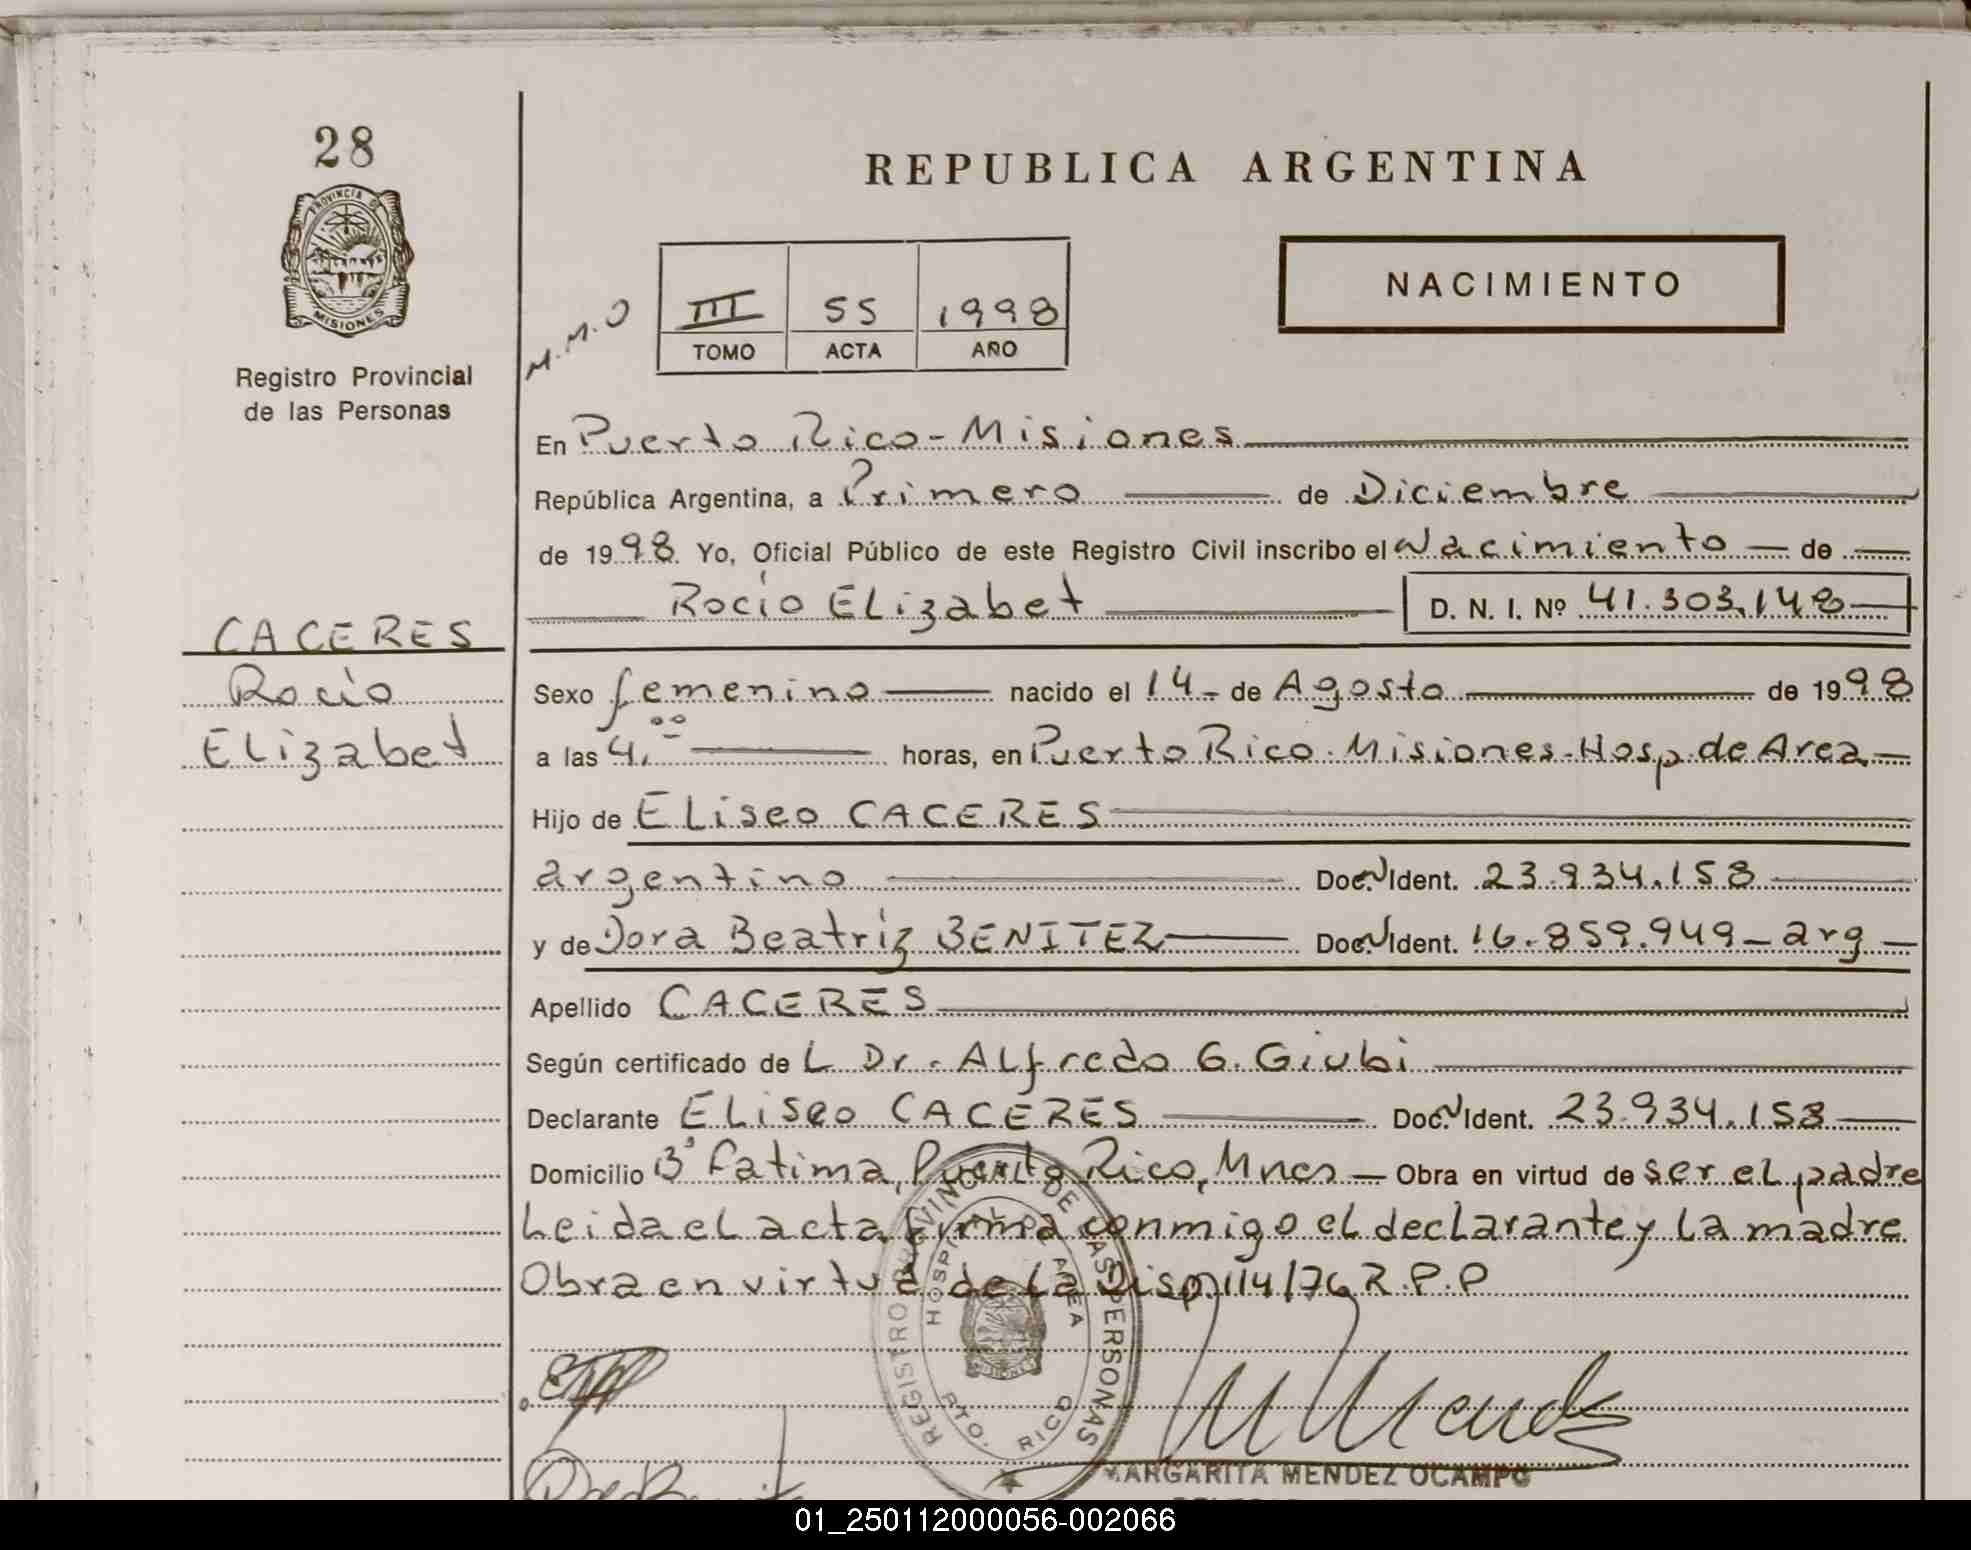 28
REPUBLICA ARGENTINA
PROVINCIA DE
MISIONES
NACIMIENTO
M.M.O
III 55 1998
TOMO ACTA AÑO
Registro Provincial
de las Personas
En Puerto Rico - Misiones
República Argentina, a Primero de Diciembre
de 1998. Yo, Oficial Público de este Registro Civil inscribo el Nacimiento de
Rocío Elizabet D. N. I. Nº 41.303.148
CACERES
Rocío
Elizabet
Sexo femenino nacido el 14 - de Agosto de 1998
a las 4,00 horas, en Puerto Rico. Misiones - Hosp. de Area
Hijo de Eliseo CACERES
argentino Doc. Ident. 23.934.158
y de Dora Beatriz BENITEZ Doc. Ident. 16.859.949 - arg
Apellido CACERES
Según certificado de L Dr. Alfredo G. Giubi
Declarante Eliseo CACERES Doc. Ident. 23.934.158
Domicilio Bº Fatima, Puerto Rico, Mnes - Obra en virtud de ser el padre
Leida el acta firma conmigo el declarante y la madre
Obra en virtud de la Disp. 114/76 R.P.P
REGISTRO PROVINCIAL DE LAS PERSONAS
HOSPITAL DE AREA
PTO. RICO
MISIONES
MARGARITA MENDEZ OCAMPO
01_250112000056-002066